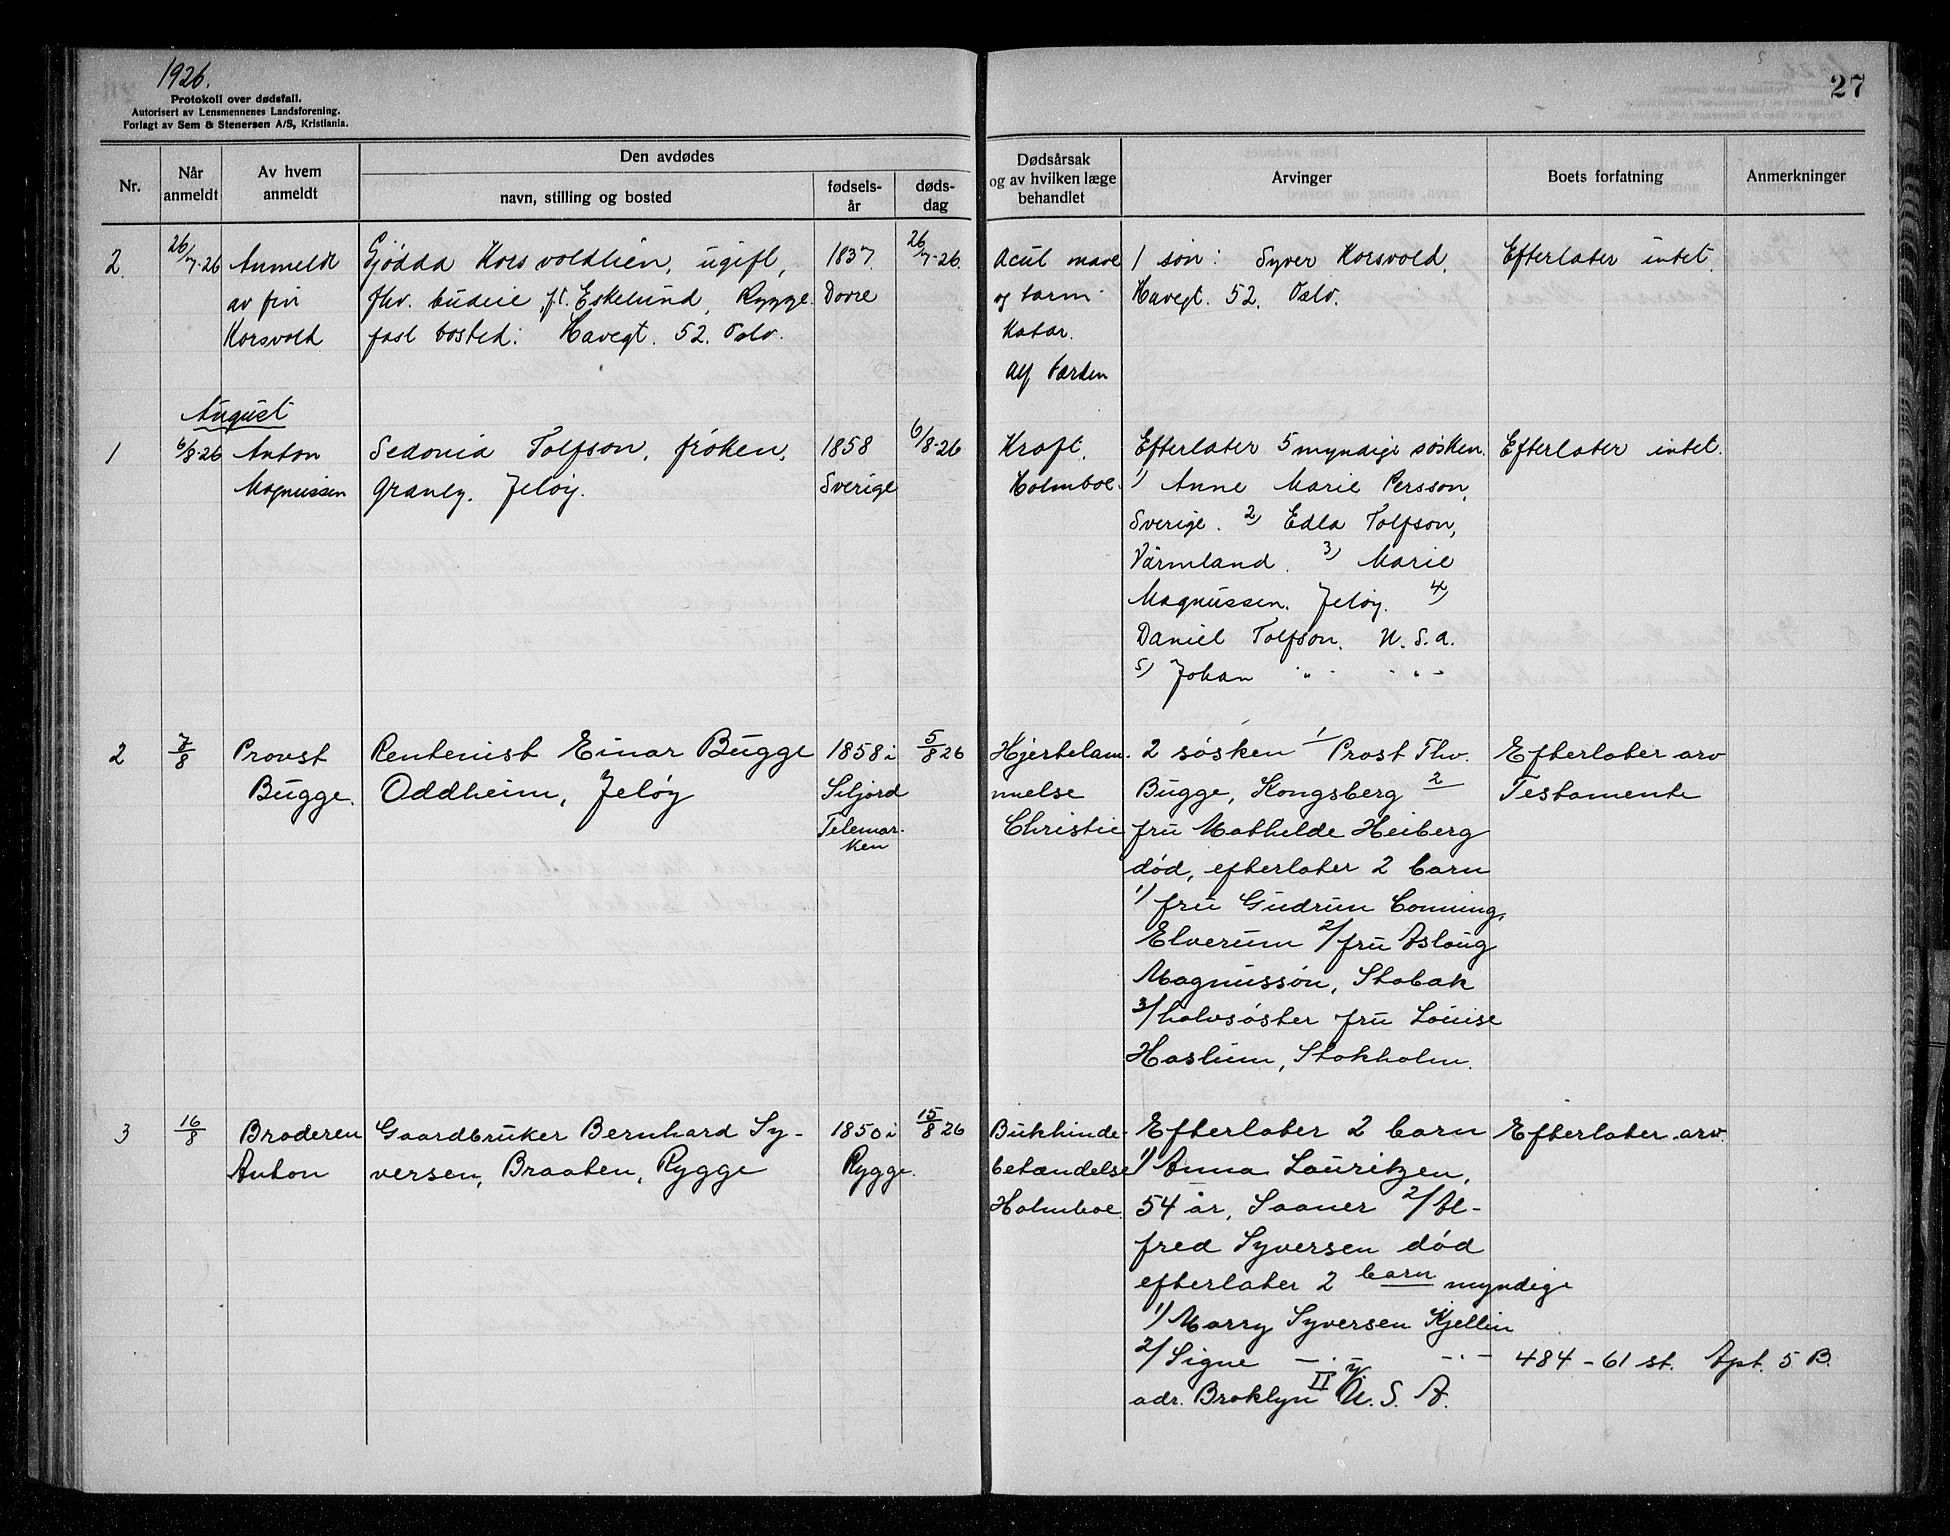 1926.
Protokoll over dødsfall.
Autorisert av Lensmennenes Landsforening.
Forlagt av Sem & Stenersen A/S, Kristiania.
27
Nr.
Når anmeldt
Av hvem anmeldt
Den avdødes
navn, stilling og bosted
fødsels-år
døds-dag
Dødsårsak og av hvilken læge behandlet
Arvinger
Boets forfatning
Anmerkninger
2.
26/7-26
Anmeldt
av fru
Korsvold
Gjødda Korsvoldlien, ugift,
fhv. budeie, p.t. Eskelund, Rygge.
fast bosted: Havegt. 52. Oslo.
1837.
Dovre
26/7-26.
Acut mave
og tarm-
katar.
Alf Færden
1 søn: Syver Korsvold,
Havegt. 52. Oslo.
Efterlater intet.
August
1
6/8-26
Anton
Magnussen
Sedonia Tolfson, frøken,
Granly. Jeløy.
1858
Sverige
6/8-26
Kræft.
Holmboe.
Efterlater 5 myndige søsken.
1) Anne Marie Persson,
Sverige. 2) Edla Tolfson,
Värmland. 3) Marie
Magnussen. Jeløy. 4)
Daniel Tolfson. U.S.A.
5) Johan " - - " -
Efterlater intet.
2
7/8
Provst
Bugge.
Rentenist Einar Bugge
Oddheim, Jeløy
1858 i
Siljord
Telemar-
ken
5/8 26
Hjertelam-
melse
Christie
2 søsken 1/ Prost Thv.
Bugge, Kongsberg 2
fru Mathelde Heiberg
død, efterlater 2 barn
1/ fru Gudrun Conning,
Elverum 2/ fru Aslaug
Magnussøn, Stabak
3/ halvsøster fru Louise
Haslum, Stokholm.
Efterlater arv
Testamente
3
16/8
Broderen
Anton
Gaardbruker Bernhard Sy-
versen, Braaten, Rygge
1850 i
Rygge.
15/8 26
Bukhinde-
betændelse
Holmboe.
Efterlater 2 barn
1/ Anna Lauritzen,
54 år, Saaner 2/ Al-
fred Syversen død
efterlater 2 barn myndige
1/ Marry Syversen Kjellin
2/ Signe -.- -.- 484 - 61 st. Apt. 5 B.
adr. Broklyn II U.S.A.
Efterlater arv.